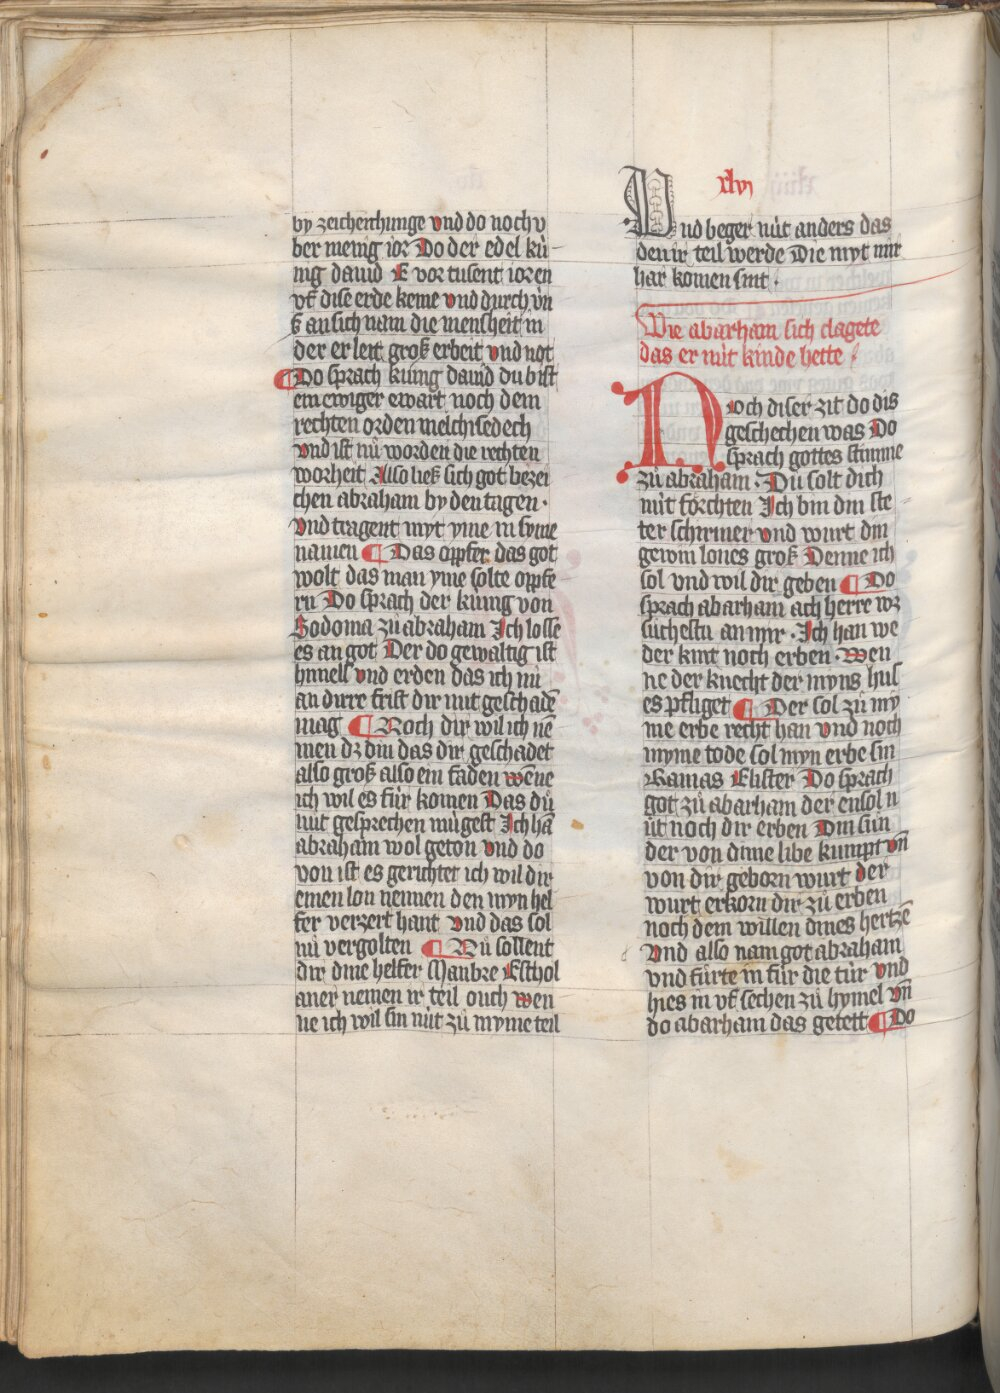 by zeichenunge vnd do noch v
ber menig ior Do der edel kú
nig dauid E vor tusent ioren
vf dise erde keme vnd durch vn
ß an sich nam die mensheit in
der er leit groß erbeit vnd not
¶ Do sprach kúnig dauid du bist
ein ewiger ewart noch dem
rechten orden melchisedech
vnd ist nů worden die rechten
worheit Also ließ sich got bezei
chen abraham by den tagen ·
vnd tragent myt yme in syme
namen ¶ Das oppfer das got
wolt das man yme solte oppfe
rn Do sprach der kúnig von
Sodoma zů abraham Ich losse
es an got Der do gewaltig ist
himels vnd erden das ich nú
an dirre frist dir nút geschadē
mag ¶ Noch dir wil ich nē
men dz din das dir geschadet
also groß also ein faden wene
ich wil es fúr komen Das dů
nút gesprechen múgest Ich hā
abraham wol geton vnd do
von ist es gerichtet ich wil dir
einen lon nennen den myn hel
fer verzert hant vnd das sol
nú vergolten ¶ Nů sollent
dir dine helfer Manbre Esthol
aner nemen ir teil ouch wen
ne ich wil sin nút zů myme teil
xlvj
Vnd beger nút anders das
den ir teil werde Die myt mir
har komen sint ·
Wie abarham sich clagete
das er nút kinde hette
Noch diser zit do dis
geschechen was Do
sprach gottes stimme
zů abraham · Du solt dich
nút fórchten Ich bin din ste
ter schirmer vnd wurt din
gewin lones groß Denne ich
sol vnd wil dir geben ¶ Do
sprach abarham ach herre wz
súchestu an mir · Ich han we
der kint noch erben · Wen
ne der knecht der myns hus
es pfliget ¶ Der sol zů my
me erbe recht han vnd noch
myme tode sol myn erbe sin
Ramas Elister Do sprach
got zů abarham der ensol n
út noch dir erben Din sun
der von dime libe kumpt vn̄
von dir geborn wurt der
wurt erkorn dir zů erben
noch dem willen dines hertzē
Vnd also nam got abraham
vnd fúrte in fúr die túr vnd
hies in vf sechen zů hymel vn̄
do abarham das getett ¶ Do